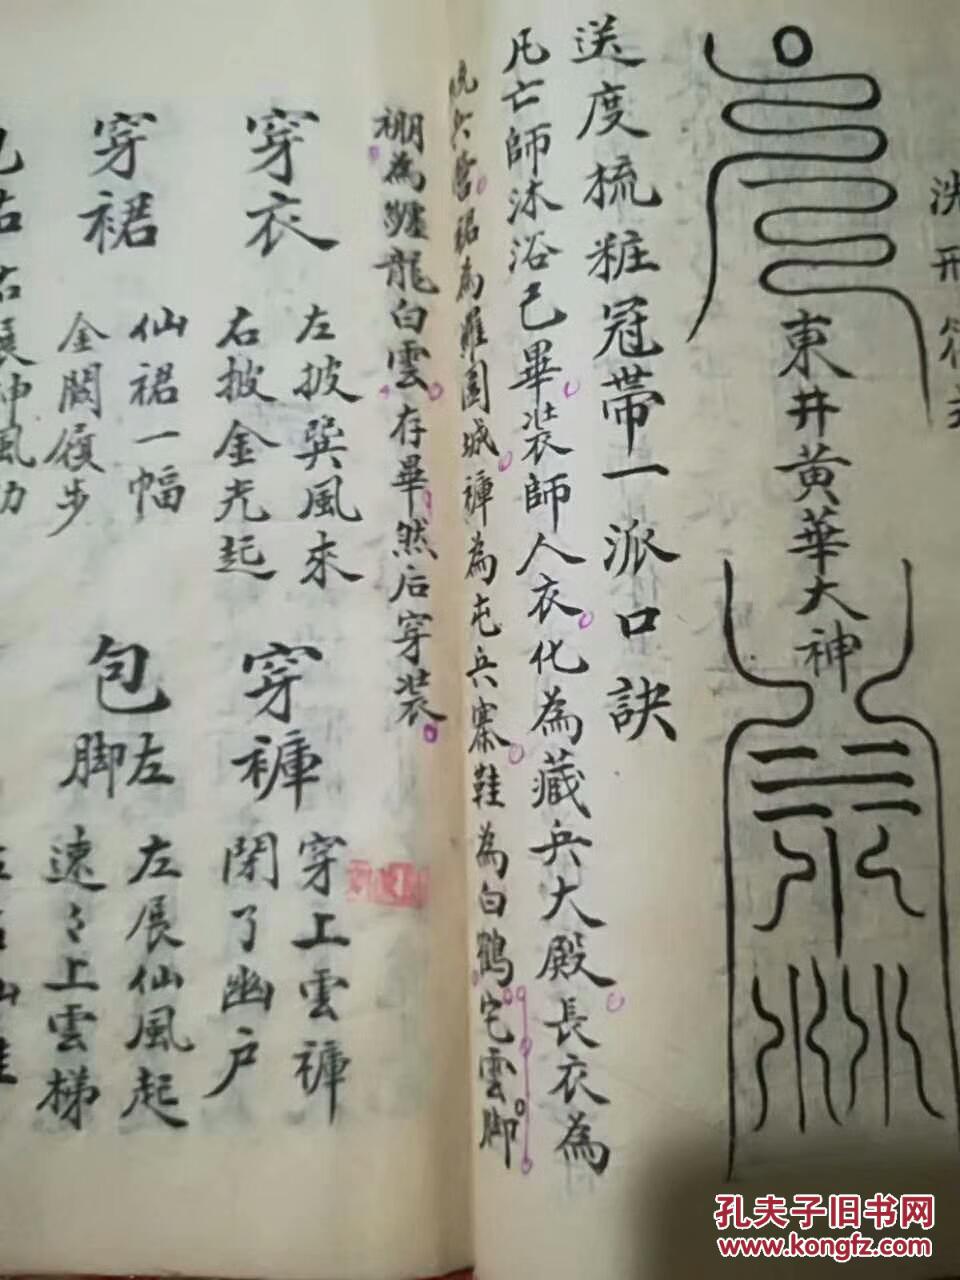 洗刑符式
東井黃華大神
送度梳粧冠帶一派口訣
凡亡師沐浴已畢裝師人衣化為藏兵大殿長衣為
兵營裙為羅圍城褲為屯兵寨鞋為白鶴宅雲脚
棚為龍白雲存畢然后穿裝
穿衣
左披巽風來
右披金光起
穿褲
穿上雲褲
閉了幽户
穿裙
仙裙一幅
金闕履步
包左脚
左展仙風起
速々上雲梯
孔夫子旧书网
www.kongfz.com